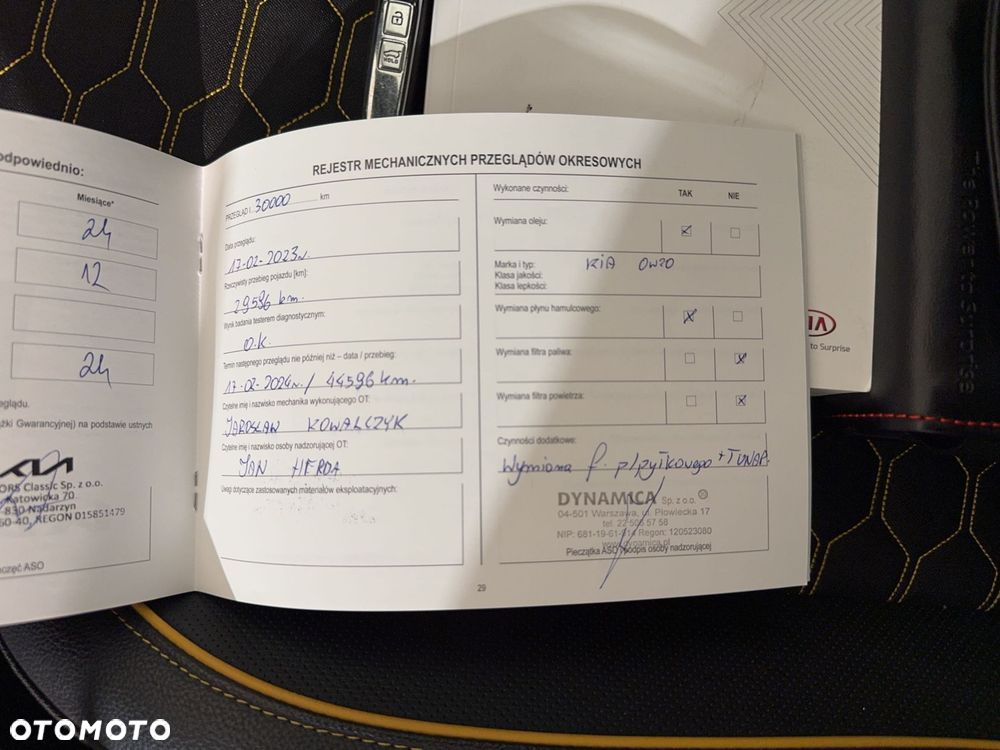 HOLD
odpowiednio:
Miesiące*
24
12
24
eglądu.
żki Gwarancyjnej) na podstawie ustnych
KIA
ORS Classic Sp. z o.o.
Katowicka 70
830 Nadarzyn
60-40, REGON 015851479
ASO
REJESTR MECHANICZNYCH PRZEGLĄDÓW OKRESOWYCH
PRZEGLĄD I 30000 km
Data przeglądu:
17-02-2023r.
Rzeczywisty przebieg pojazdu [km]:
29596 km.
Wynik badania testerem diagnostycznym:
O.K.
Termin następnego przeglądu nie później niż – data / przebieg:
17-02-2024r./ 44596 km.
Czytelne imię i nazwisko mechanika wykonującego OT:
JAROSŁAW KOWALCZYK
Czytelne imię i nazwisko osoby nadzorującej OT:
JAN HERDA
Uwagi dotyczące zastosowanych materiałów eksploatacyjnych:
Wykonane czynności: TAK NIE
Wymiana oleju:
Marka i typ: KIA 0W20
Klasa jakości:
Klasa lepkości:
Wymiana płynu hamulcowego:
Wymiana filtra paliwa:
Wymiana filtra powietrza:
Czynności dodatkowe:
Wymiana f. p/pyłkowego + TUNAP.
DYNAMICA Sp. z o.o.
04-501 Warszawa, ul. Płowiecka 17
tel. 22 506 57 58
NIP: 681-19-61-914 Regon: 120523080
www.dynamica.pl
Pieczątka ASO i podpis osoby nadzorującej
29
KIA
to Surprise
The Power to Surprise
OTOMOTO